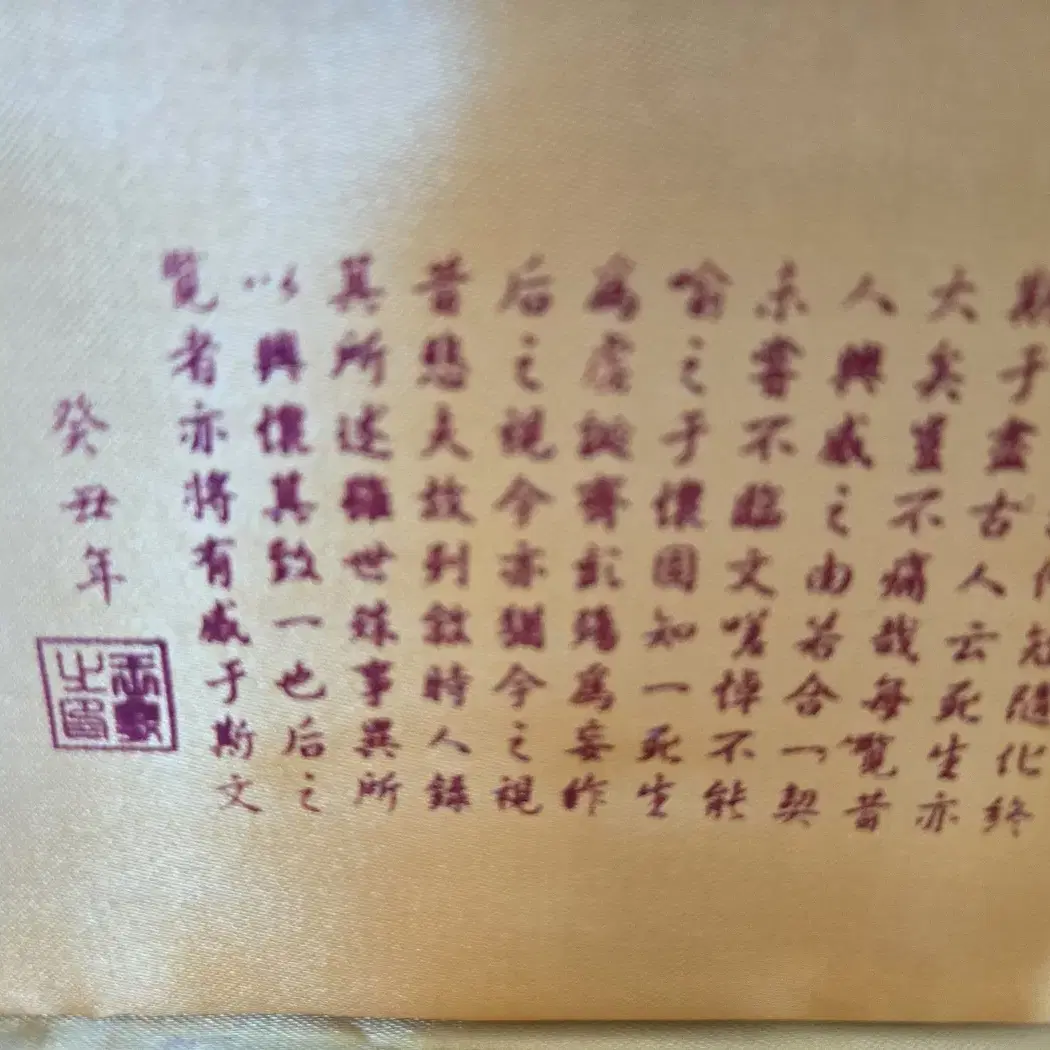 隨化終
期于盡古人云死生亦
大矣豈不痛哉每覽昔
人興感之由若合一契
未嘗不臨文嗟悼不能
喻之于懷固知一死生
為虛誕齊彭殤為妄作
后之視今亦猶今之視
昔悲夫故列敘時人錄
其所述雖世殊事異所
以興懷其致一也后之
覽者亦將有感于斯文
癸丑年